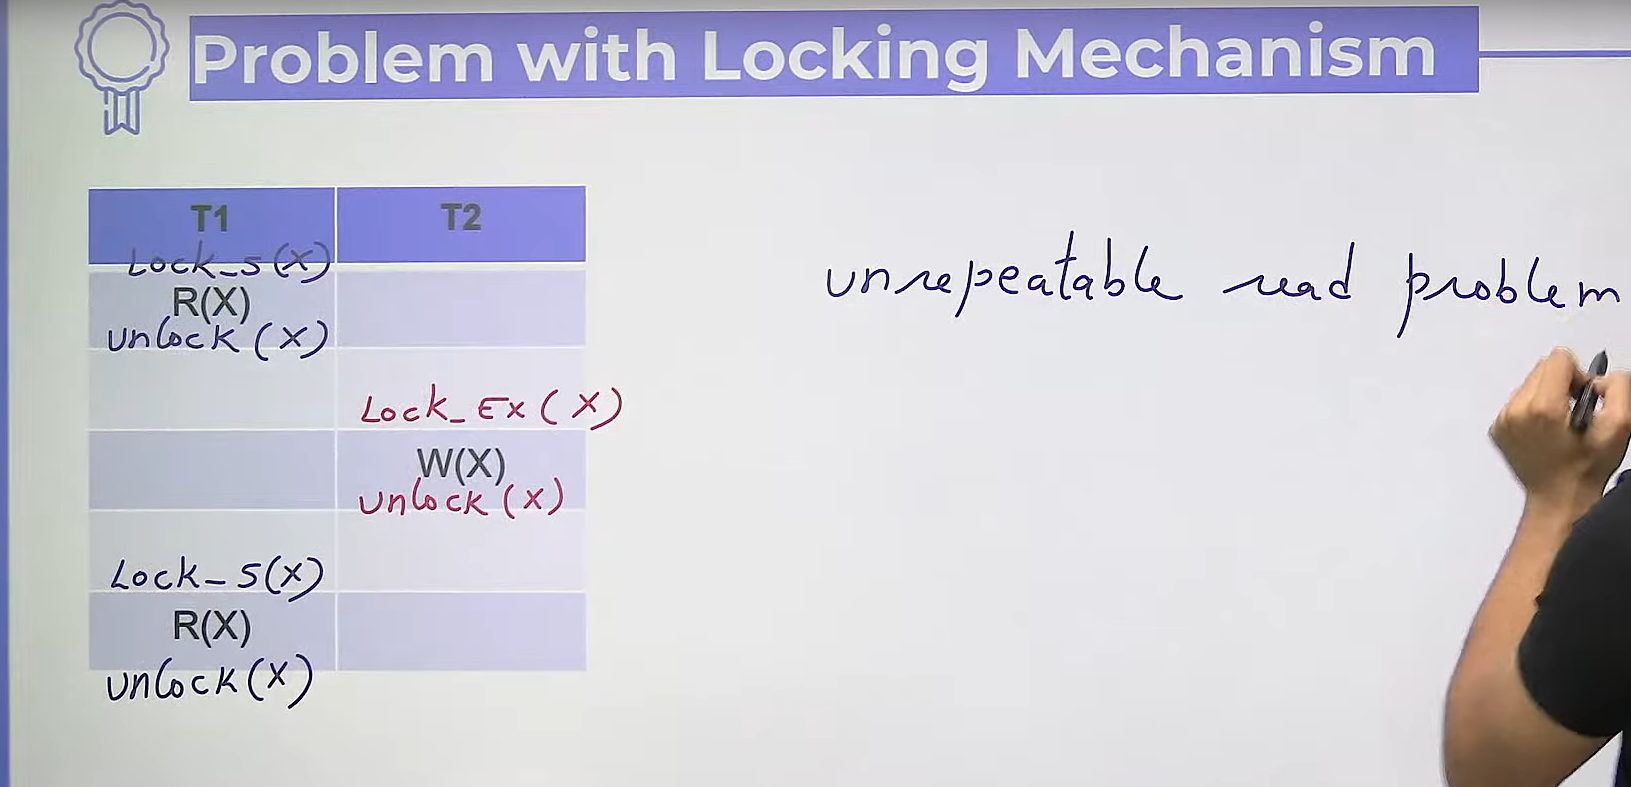 Problem with Locking Mechanism
T1 T2
Lock_S(X)
R(X)
unlock(X)
Lock_Ex(X)
W(X)
unlock(X)
Lock_S(X)
R(X)
unlock(X)
unrepeatable read problem